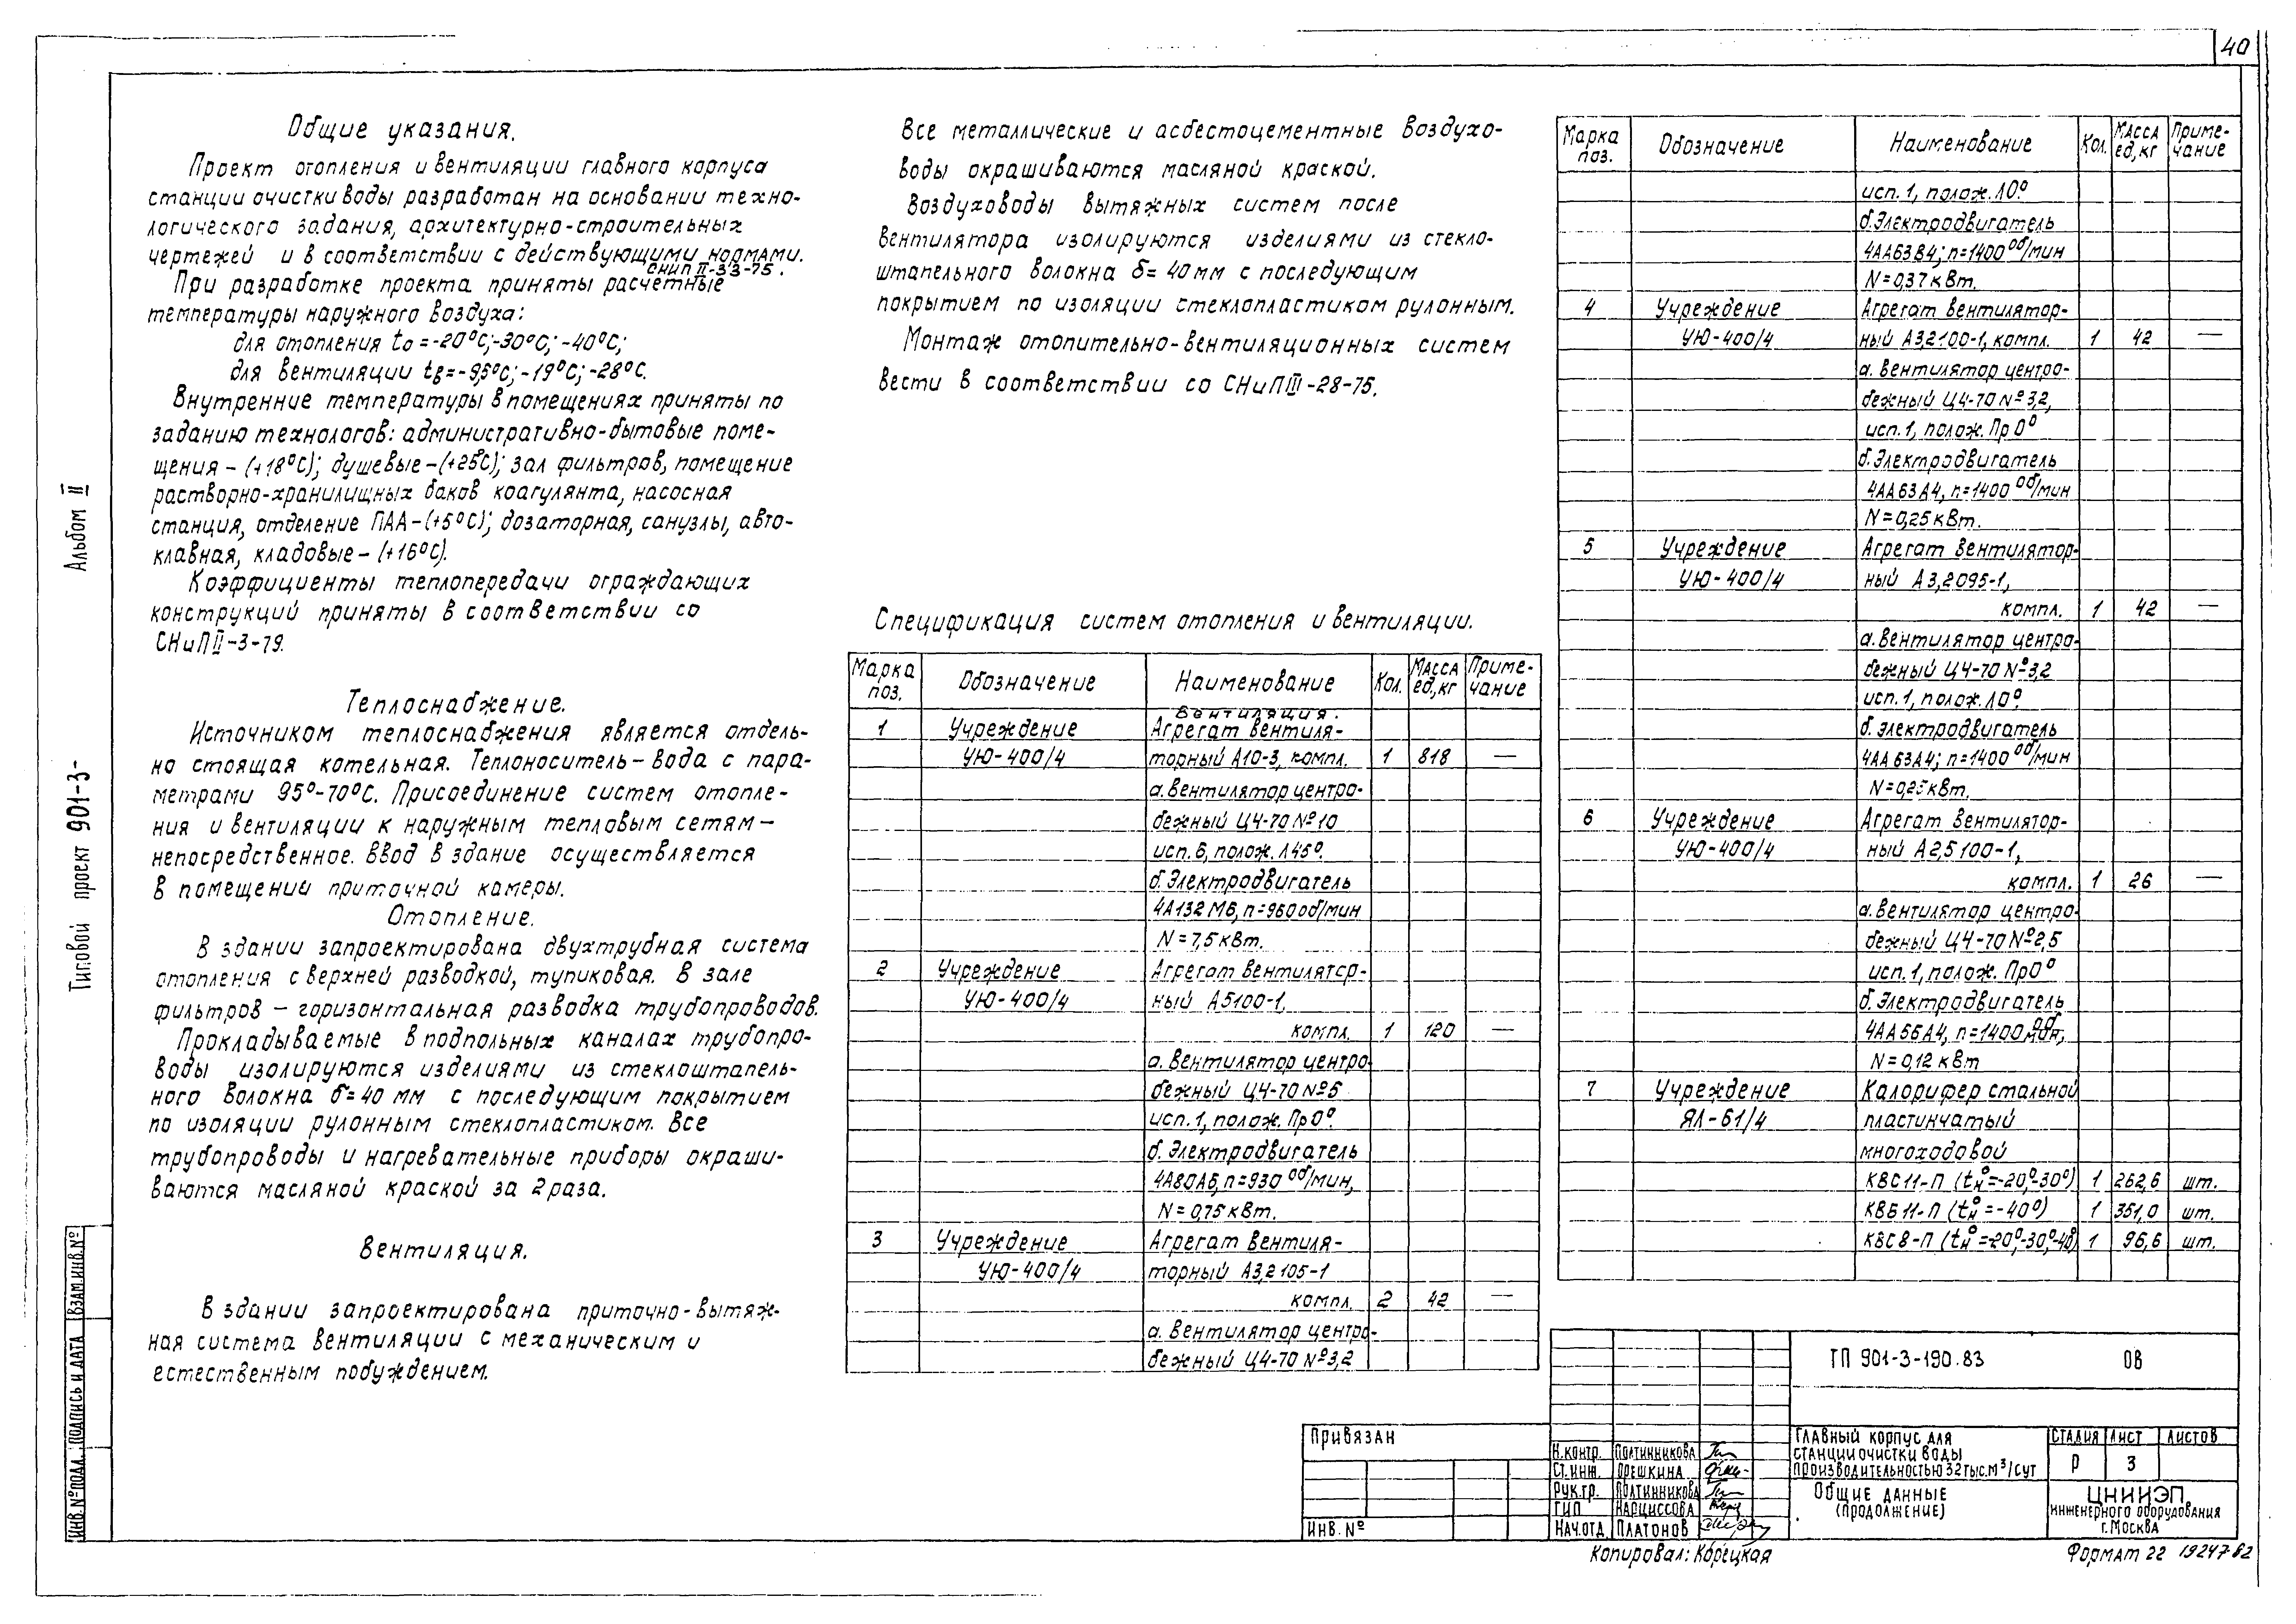 40
Общие указания.
Проект отопления и вентиляции главного корпуса
станции очистки воды разработан на основании техно-
логического задания, архитектурно-строительных
чертежей и в соответствии с действующими нормами.
СНиП II-33-75.
При разработке проекта приняты расчетные
температуры наружного воздуха:
для отопления tо=-20°С;-30°С;-40°С;
для вентиляции tв=-9,5°С;-19°С;-28°С.
Внутренние температуры в помещениях приняты по
заданию технологов: административно-бытовые поме-
щения-(+18°С); душевые-(+25°С); зал фильтров, помещение
растворно-хранилищных баков коагулянта, насосная
станция, отделение ПАА-(+5°С); дозаторная, санузлы, авто-
клавная, кладовые-(+16°С).
Коэффициенты теплопередачи ограждающих
конструкций приняты в соответствии со
СНиП II-3-79.
Теплоснабжение.
Источником теплоснабжения является отдель-
но стоящая котельная. Теплоноситель-вода с пара-
метрами 95°-70°С. Присоединение систем отопле-
ния и вентиляции к наружным тепловым сетям-
непосредственное. Ввод в здание осуществляется
в помещении приточной камеры.
Отопление.
В здании запроектирована двухтрубная система
отопления с верхней разводкой, тупиковая. В зале
фильтров - горизонтальная разводка трубопроводов.
Прокладываемые в подпольных каналах трубопро-
воды изолируются изделиями из стеклоштапель-
ного волокна δ=40 мм с последующим покрытием
по изоляции рулонным стеклопластиком. Все
трубопроводы и нагревательные приборы окраши-
ваются масляной краской за 2 раза.
Вентиляция.
В здании запроектирована приточно-вытяж-
ная система вентиляции с механическим и
естественным побуждением.
Все металлические и асбестоцементные воздухо-
воды окрашиваются масляной краской.
Воздуховоды вытяжных систем после
вентилятора изолируются изделиями из стекло-
штапельного волокна δ=40мм с последующим
покрытием по изоляции стеклопластиком рулонным.
Монтаж отопительно-вентиляционных систем
вести в соответствии со СНиП III-28-75.
Спецификация систем отопления и вентиляции.
Марка поз. Обозначение Наименование Кол. Масса ед,кг Приме-чание
Вентиляция.
1 Учреждение Агрегат вентиля-
УЮ-400/4 торный А10-3, компл. 1 818 —
а. Вентилятор центро-
бежный Ц4-70 №10
исп. 6, полож. Л45°.
б. Электродвигатель
4А132М6, n=960об/мин
N=7,5 кВт.
2 Учреждение Агрегат вентилятор-
УЮ-400/4 ный А5100-1,
компл. 1 120 —
а. Вентилятор центро
бежный Ц4-70 №5
исп. 1, полож. Пр0°.
б. Электродвигатель
4А80А6, n=930 об/мин,
N=0,75 кВт.
3 Учреждение Агрегат вентиля-
УЮ-400/4 торный А3,2105-1
компл. 2 42 —
а. Вентилятор центро-
бежный Ц4-70 №3,2
Марка поз. Обозначение Наименование Кол. Масса ед,кг Приме-чание
исп. 1, полож. Л0°.
б. Электродвигатель
4АА63В4; n=1400 об/мин
N=0,37 кВт.
4 Учреждение Агрегат вентилятор-
УЮ-400/4 ный А3,2100-1, компл. 1 42 —
а. Вентилятор центро-
бежный Ц4-70 №3,2,
исп. 1, полож. Пр0°
б. Электродвигатель
4АА63А4, n=1400 об/мин
N=0,25 кВт.
5 Учреждение Агрегат вентилятор-
УЮ-400/4 ный А3,2095-1,
компл. 1 42 —
а. Вентилятор центро-
бежный Ц4-70 №3,2
исп. 1, полож. Л0°.
б. Электродвигатель
4АА63А4; n=1400 об/мин
N=0,25 кВт.
6 Учреждение Агрегат вентилятор-
УЮ-400/4 ный А2,5100-1,
компл. 1 26 —
а. Вентилятор центро-
бежный Ц4-70 №2,5
исп. 1, полож. Пр0°
б. Электродвигатель
4АА56А4, n=1400 об/мин,
N=0,12 кВт
7 Учреждение Калорифер стальной
ЯЛ-61/4 пластинчатый
многоходовой
КВС11-П (tн°=-20°,-30°) 1 262,6 шт.
КВБ11-П (tн°=-40°) 1 351,0 шт.
КВС8-П (tн°=-20°,-30°,-40°) 1 96,6 шт.
Альбом II
Типовой проект 901-3-
Инв.№подл. Подпись и дата Взам.инв.№
Привязан
Инв.№
ТП 901-3-190.83 ОВ
Н.контр. Полтинникова
Ст.инж. Орешкина
Рук.гр. Полтинникова
ГИП Нарциссова
Нач.отд. Платонов
Главный корпус для
станции очистки воды
производительностью 32 тыс.м³/сут
Стадия Лист Листов
Р 3
Общие данные
(продолжение)
ЦНИИЭП
инженерного оборудования
г. Москва
Копировал: Корецкая
Формат 22 19247-02